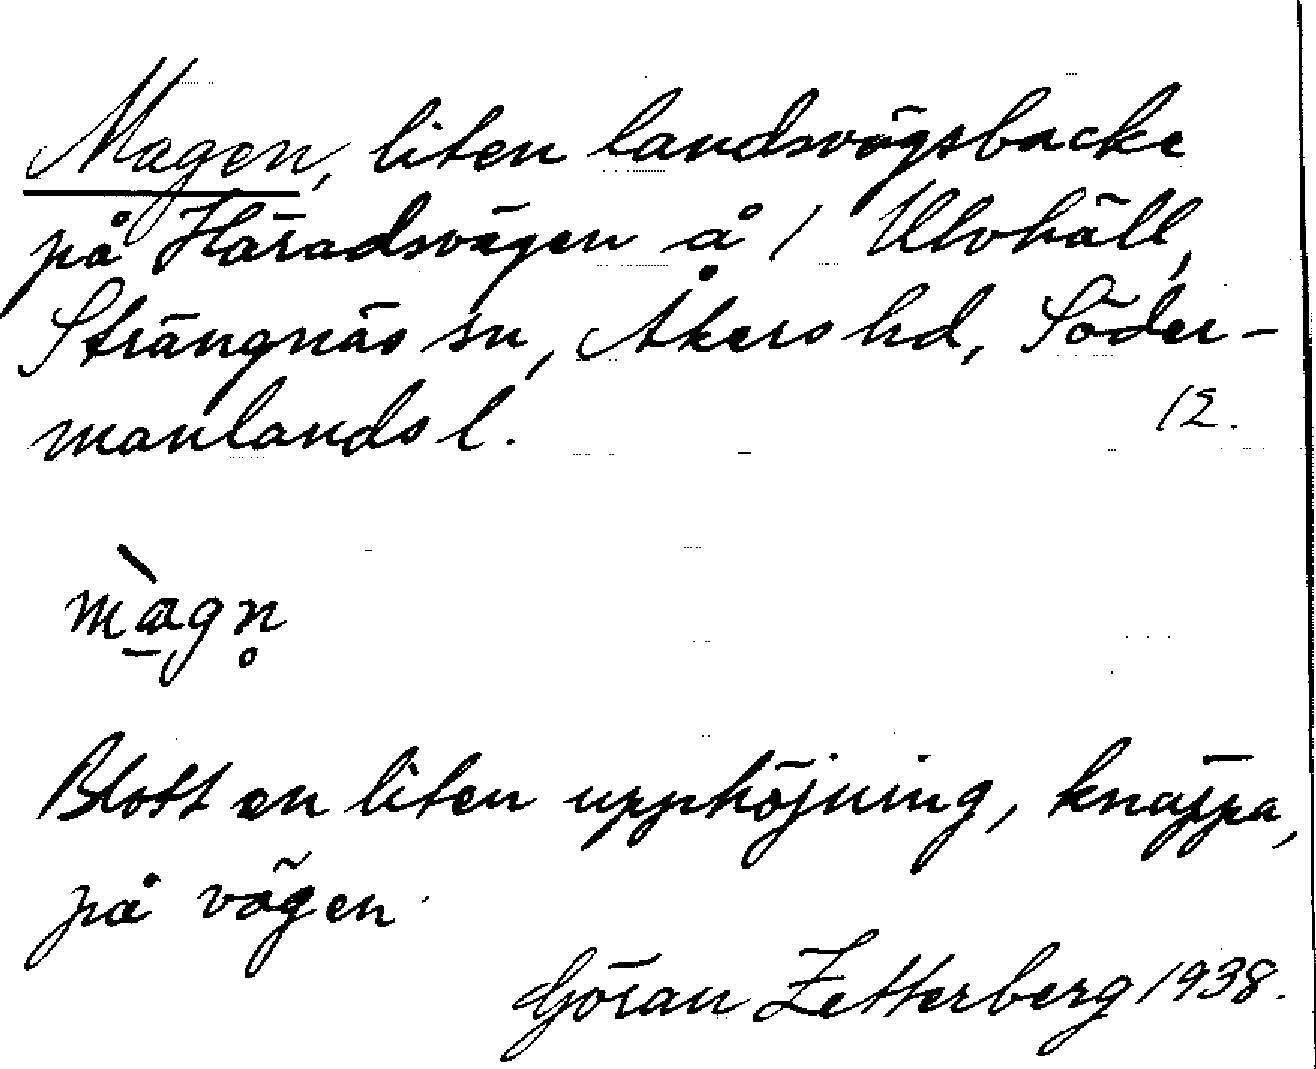 Magen, liten landsvägsbacke
på Häradsvägen å 1 Ulvhäll,
Strängnäs sn, Åkers hd, Söder-
manlands l. 12.
màgn̥
Blott en liten upphöjning, knäppa,
på vägen.
Göran Zetterberg 1938.